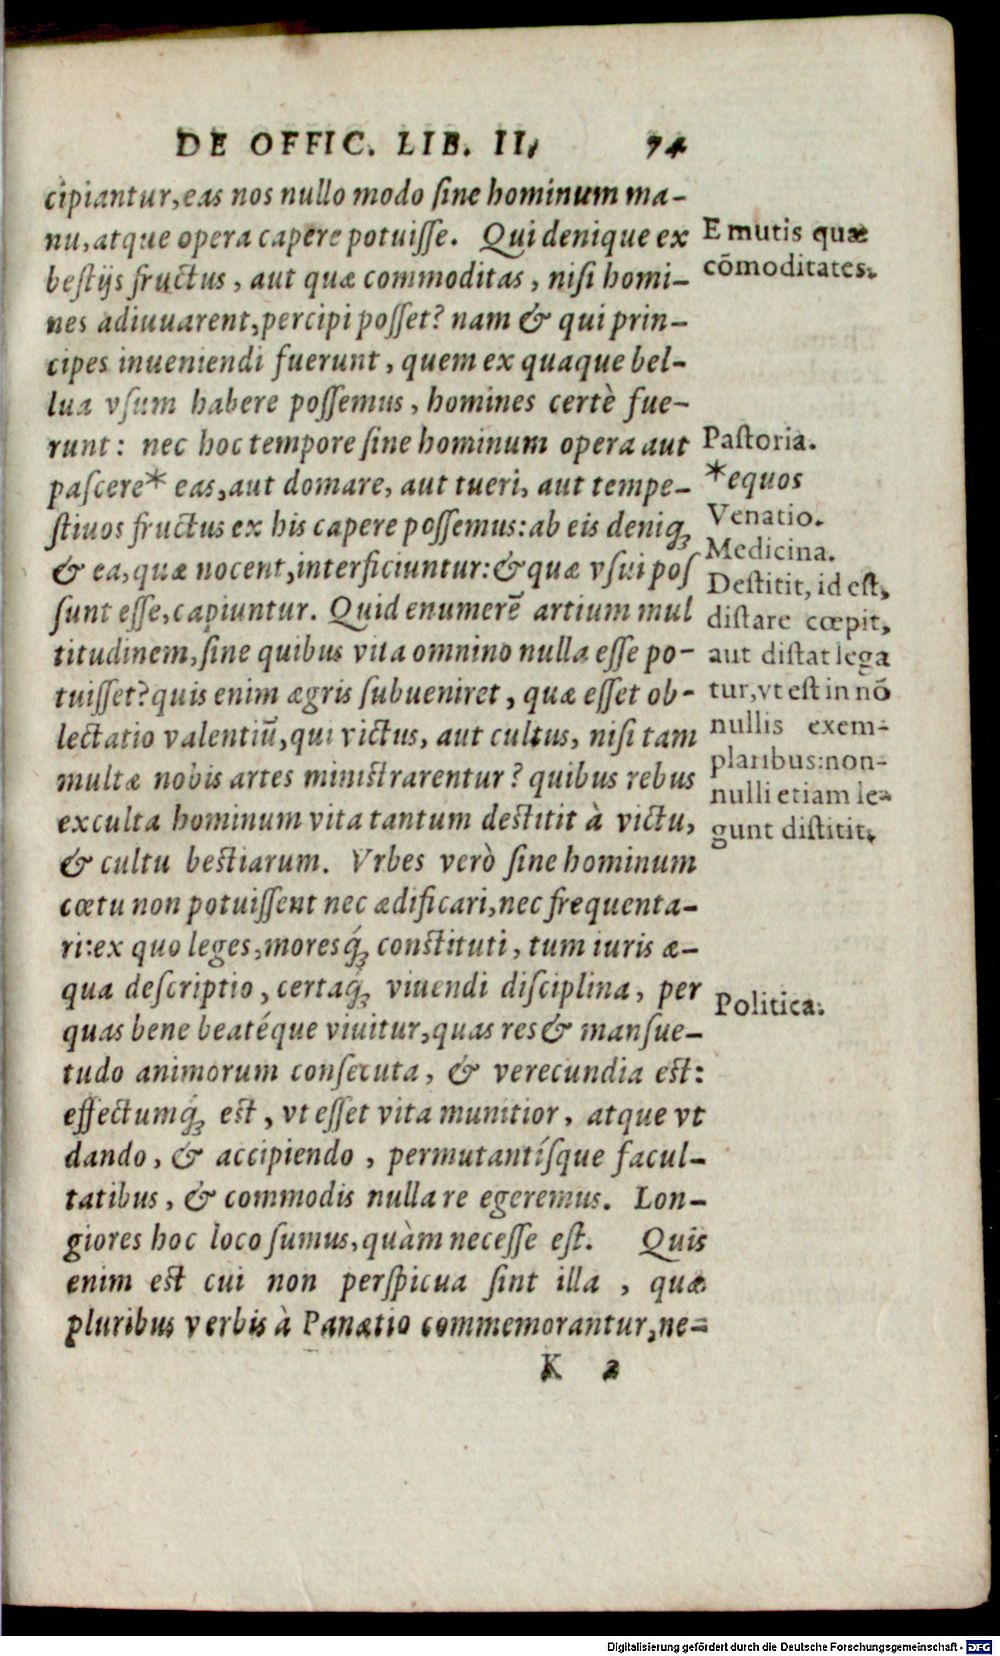 DE OFFIC. LIB. II. 74
cipiantur, eas nos nullo modo sine hominum ma-
nu, atque opera capere potuisse. Qui denique ex
bestijs fructus, aut quæ commoditas, nisi homi-
nes adiuuarent, percipi posset? nam & qui prin-
cipes inueniendi fuerunt, quem ex quaque bel-
lua vsum habere possemus, homines certè fue-
runt: nec hoc tempore sine hominum opera aut
pascere* eas, aut domare, aut tueri, aut tempe-
stiuos fructus ex his capere possemus: ab eis deniq́;
& ea, quæ nocent, interficiuntur: & quæ vsui pos
sunt esse, capiuntur. Quid enumerẽ artium mul
titudinem, sine quibus vita omnino nulla esse po-
tuisset? quis enim ægris subueniret, quæ esset ob-
lectatio valentiũ, qui victus, aut cultus, nisi tam
multæ nobis artes ministrarentur? quibus rebus
exculta hominum vita tantum destitit à victu,
& cultu bestiarum. Vrbes verò sine hominum
cœtu non potuissent nec ædificari, nec frequenta-
ri: ex quo leges, moresq́; constituti, tum iuris æ-
qua descriptio, certaq́; viuendi disciplina, per
quas bene beatéque viuitur, quas res & mansue-
tudo animorum consecuta, & verecundia est:
effectumq́; est, vt esset vita munitior, atque vt
dando, & accipiendo, permutantísque facul-
tatibus, & commodis nulla re egeremus. Lon-
giores hoc loco sumus, quàm necesse est. Quis
enim est cui non perspicua sint illa, quæ
pluribus verbis à Panætio commemorantur, ne-
K 2
E mutis quæ
cõmoditates.
Pastoria.
*equos
Venatio.
Medicina.
Destitit, id est,
distare cœpit,
aut distat lega
tur, vt est in nõ
nullis exem-
plaribus: non-
nulli etiam le-
gunt distitit.
Politica.
Digitalisierung gefördert durch die Deutsche Forschungsgemeinschaft - DFG